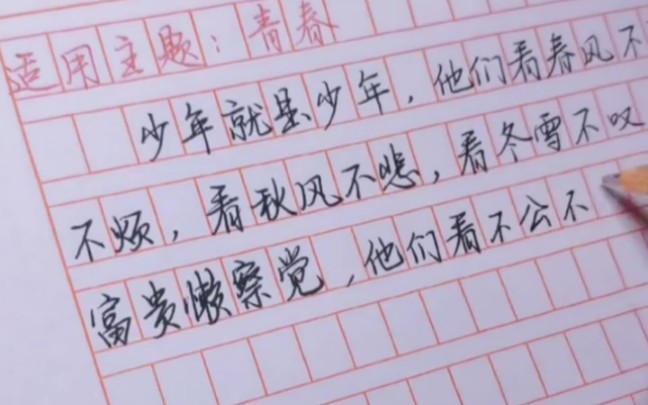 适用主题：青春
少年就是少年，他们看春风不
不烦，看秋风不悲，看冬雪不叹
富贵懒察觉，他们看不公不